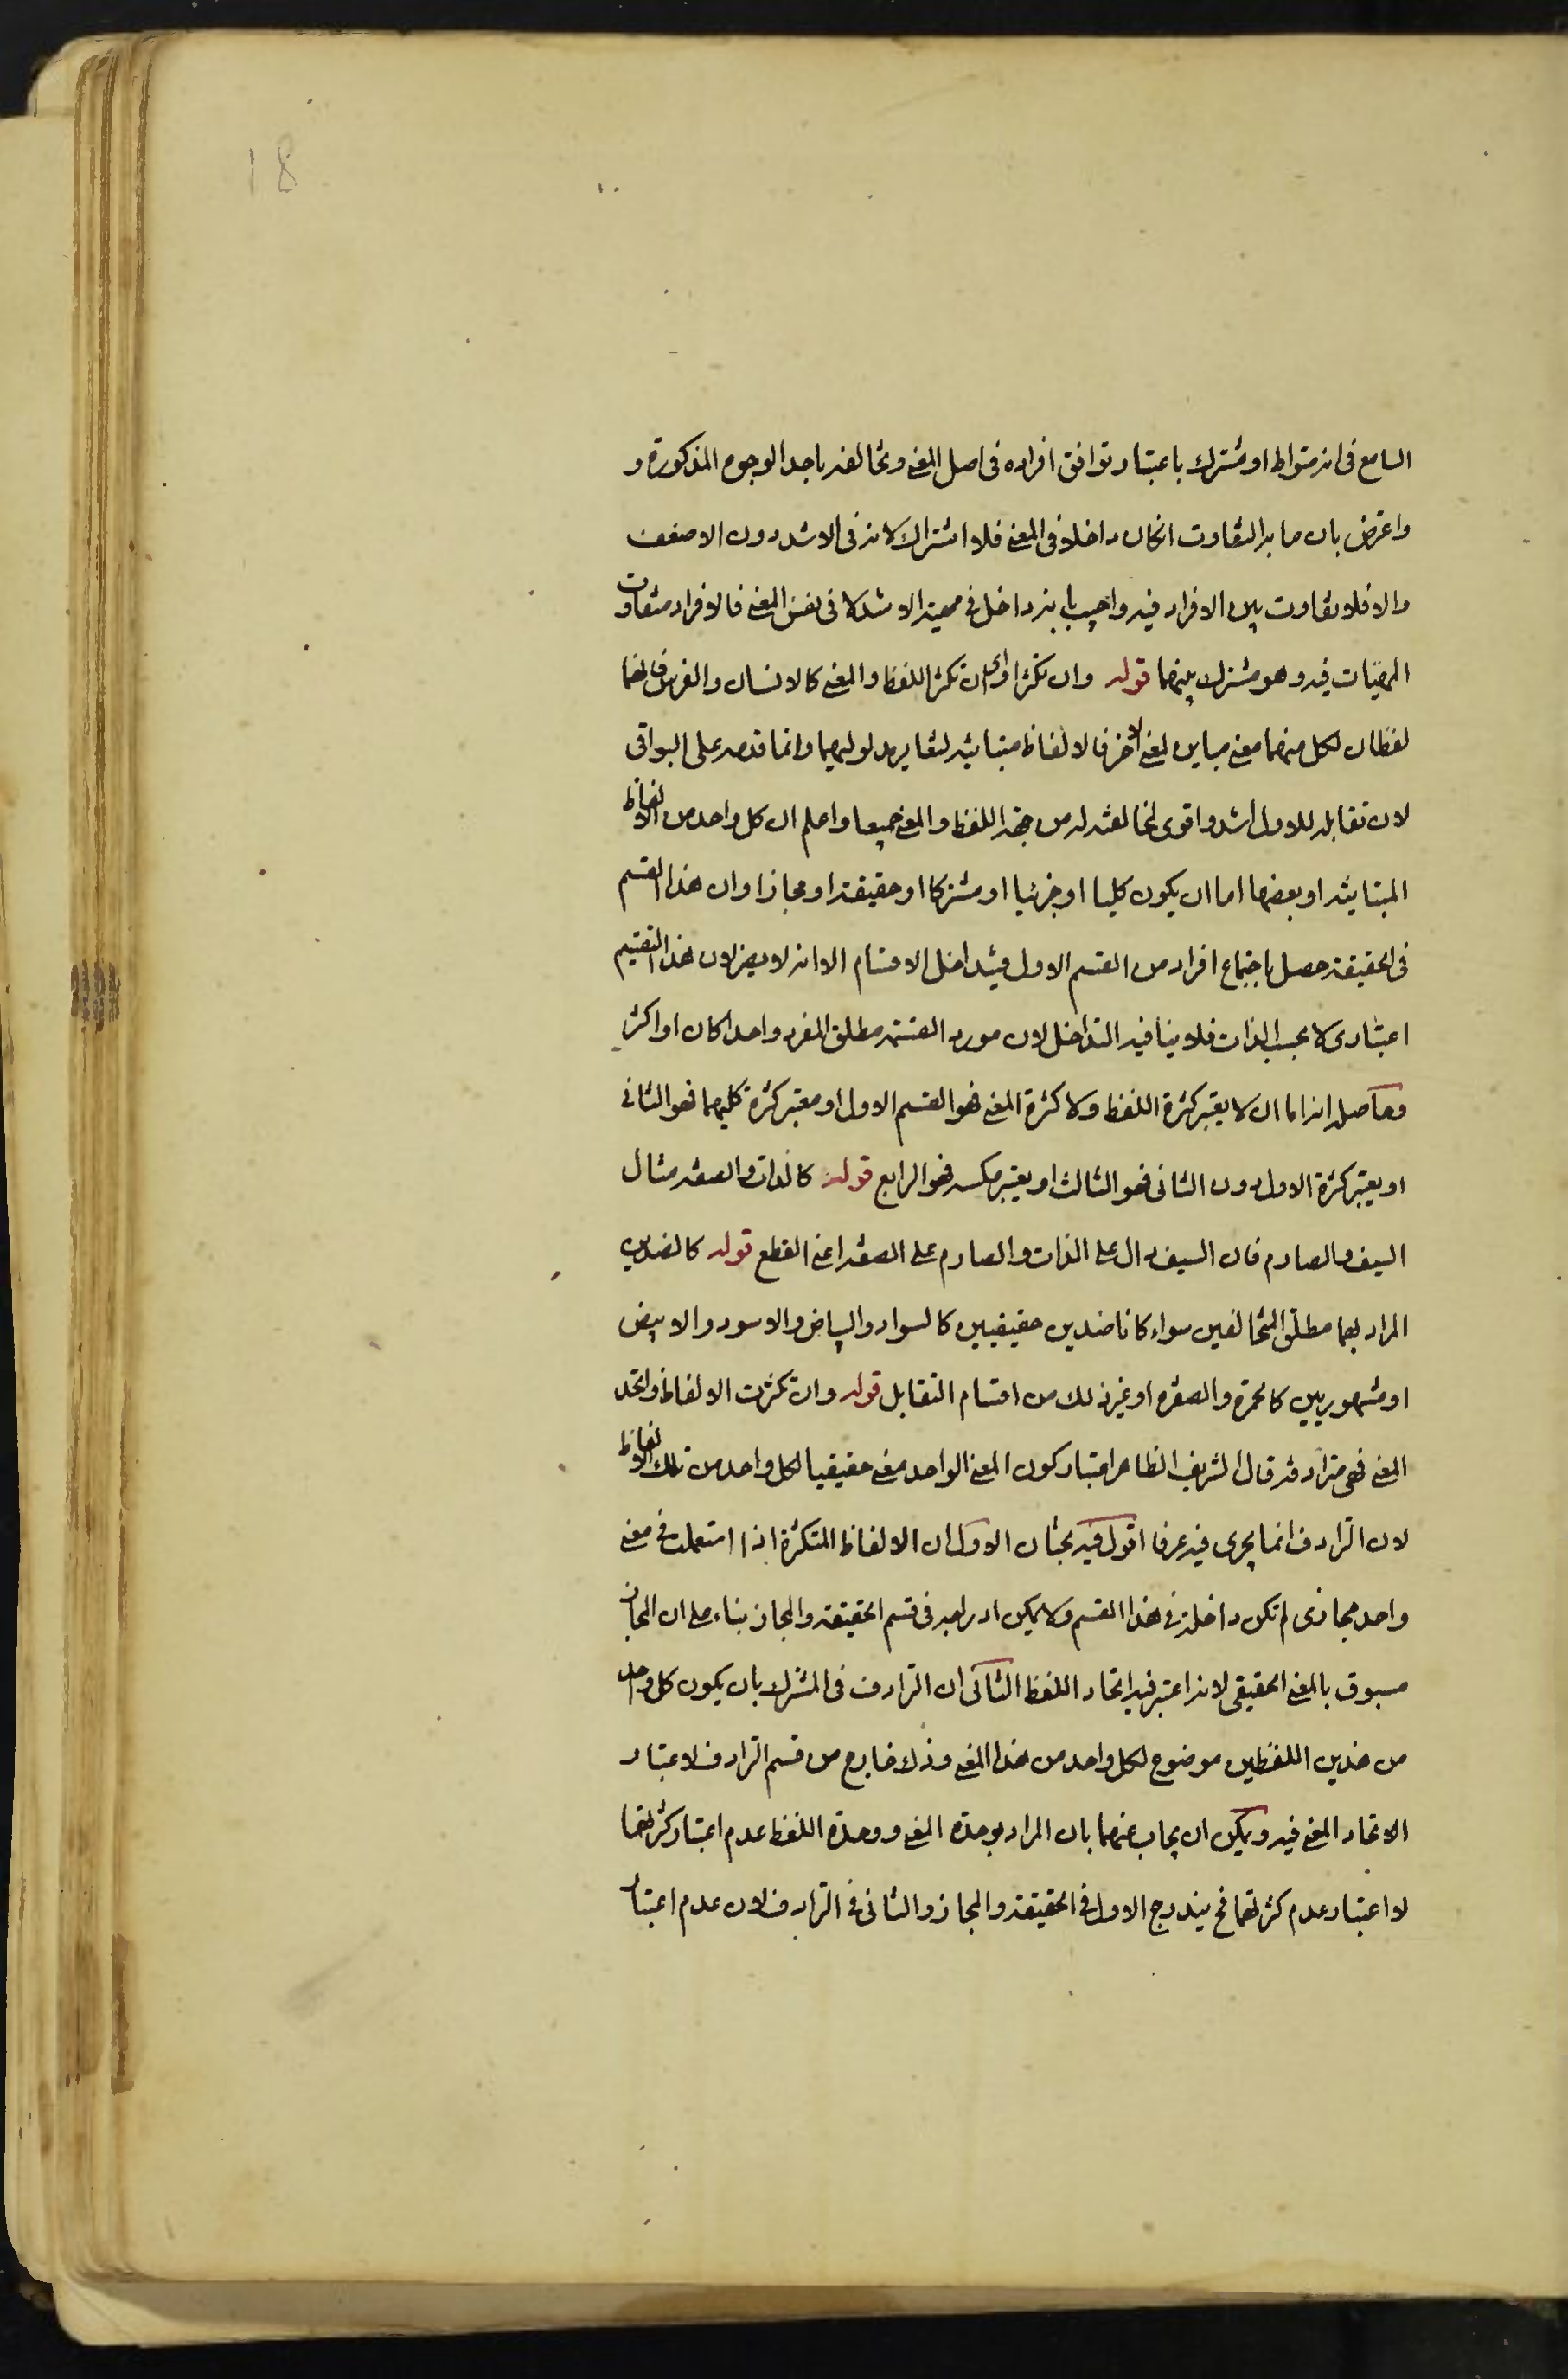 18
السامع فى انه متواط او مشترك باعتبار توافق افراده فى اصل المعنى وتخالفه باحد الوجوه المذكورة و
واعترض بان ما به التفاوت انكان داخلا فى المعنى فلا اشتراك لانه فى الاشد دون الاضعف
والا فلا تفاوت بين الافراد فيه واجيب بانه داخل فى مهية الاشد لا فى نفس المعنى فالافراد متفاوت
المهيات فيه وهو مشترك بينهما قوله وان تكثرا اى ان تكثر اللفظ والمعنى كالانسان والفرس فانهما
لفظان لكل منهما معنى مباين لمعنى الاخر فالالفاظ متباينه لتغاير مدلوليهما وانما قدمه على البواقى
لان تقابله للاول اشد واقوى لمخالفته له من جهة اللفظ والمعنى جميعا واعلم ان كل واحد من الالفاظ
المتباينه او بعضها اما ان يكون كليا او جزئيا او مشتركا او حقيقة او مجازا وان هذا القسم
فى الحقيقة حصل باجتماع افراد من القسم الاول فيتداخل الاقسام الا انه لا يضر لان هذا التقسيم
اعتبارى لا بحسب الذات فلا ينافيه التداخل لان مورد القسمة مطلق المفرد واحدا كان او اكثر
وحاصله انه اما ان لا يعتبر كثرة اللفظ ولا كثرة المعنى فهو القسم الاول او معتبر كثرة كليهما فهو الثانى
او يعتبر كثرة الاول دون الثانى فهو الثالث او يعتبر عكسه فهو الرابع قوله كالذات والصفه مثال
السيف والصارم فان السيف دال على الذات والصارم على الصفه اعنى القطع قوله كالضدين
المراد بهما مطلق المتخالفين سواء كانا ضدين حقيقيين كالسواد والبياض والاسود والابيض
او مشهوريين كالحمرة والصفره او غير ذلك من اقسام التقابل قوله وان تكثرت الالفاظ واتحد
المعنى فهى مترادفه قال الشريف الظاهر اعتبار كون المعنى الواحد معنى حقيقيا لكل واحد من تلك الالفاظ
لان الترادف انما يجرى فيه عرفا اقول فيه بحثان الاول ان الالفاظ المتكثرة اذا استعملت فى معنى
واحد مجازى لم تكن داخلة فى هذا القسم ولا يمكن ادراجه فى قسم الحقيقة والمجاز بناء على ان المجاز
مسبوق بالمعنى الحقيقى لانه اعتبر فيه اتحاد اللفظ الثانى ان الترادف فى المشترك بان يكون كل واحد
من هذين اللفظين موضوع لكل واحد من هذا المعنى وذلك خارج من قسم الترادف لاعتبار
الاتحاد المعنى فيه ويمكن ان يجاب عنهما بان المراد بوحدة المعنى ووحدة اللفظ عدم اعتبار كثرتهما
لا اعتبار عدم كثرتهما فح يندرج الاول فى الحقيقة والمجاز والثانى فى الترادف لان عدم اعتبار